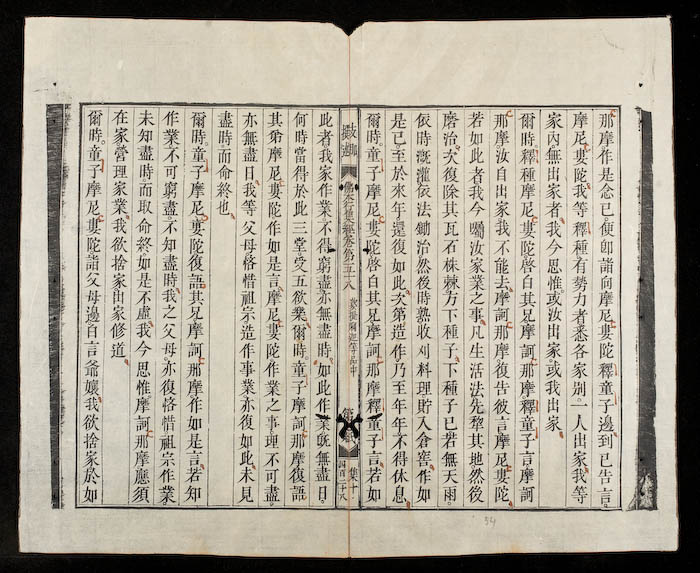 那摩作是念已便即詣向摩尼婁陀釋童子邊到已告言
摩尼婁陀我等釋種有勢力者悉各家別一人出家我等
家內無出家者我今思惟或汝出家或我出家
爾時釋種摩尼婁陀啓白其兄摩訶那摩釋童子言摩訶
那摩汝自出家我不能去摩訶那摩復告彼言摩尼婁陀
若如此者我今囑汝家業之事凡生活法先犂其地然後
磨治次復除其瓦石株棘方下種子下種子已若無天雨
依時漑灌依法鋤治然後時熟收刈料理貯入倉窖作如
是已至於來年還復如此次第造作乃至年年不得休息
爾時童子摩尼婁陀啓白其兄摩訶那摩釋童子言若如
佛本行集經卷第五十八
此者我家作業不得窮盡亦無盡時如此作業旣無盡日
何時當得於此三堂受五欲業爾時童子摩訶那摩復語
其弟摩尼婁陀作如是言摩尼婁陀作業之事理不可盡
亦無盡日我等父母悋惜祖宗造作事業亦復如此未見
盡時而命終也
爾時童子摩尼婁陀復語其兄摩訶那摩作如是言若知
作業不可窮盡不知盡時我之父母亦復悋惜祖宗作業
未知盡時而取命終如是不虛我今思惟摩訶那摩應須
在家營理家業我欲捨家出家修道
爾時童子摩尼婁陀詣父母邊白言爺孃我欲捨家於如
54